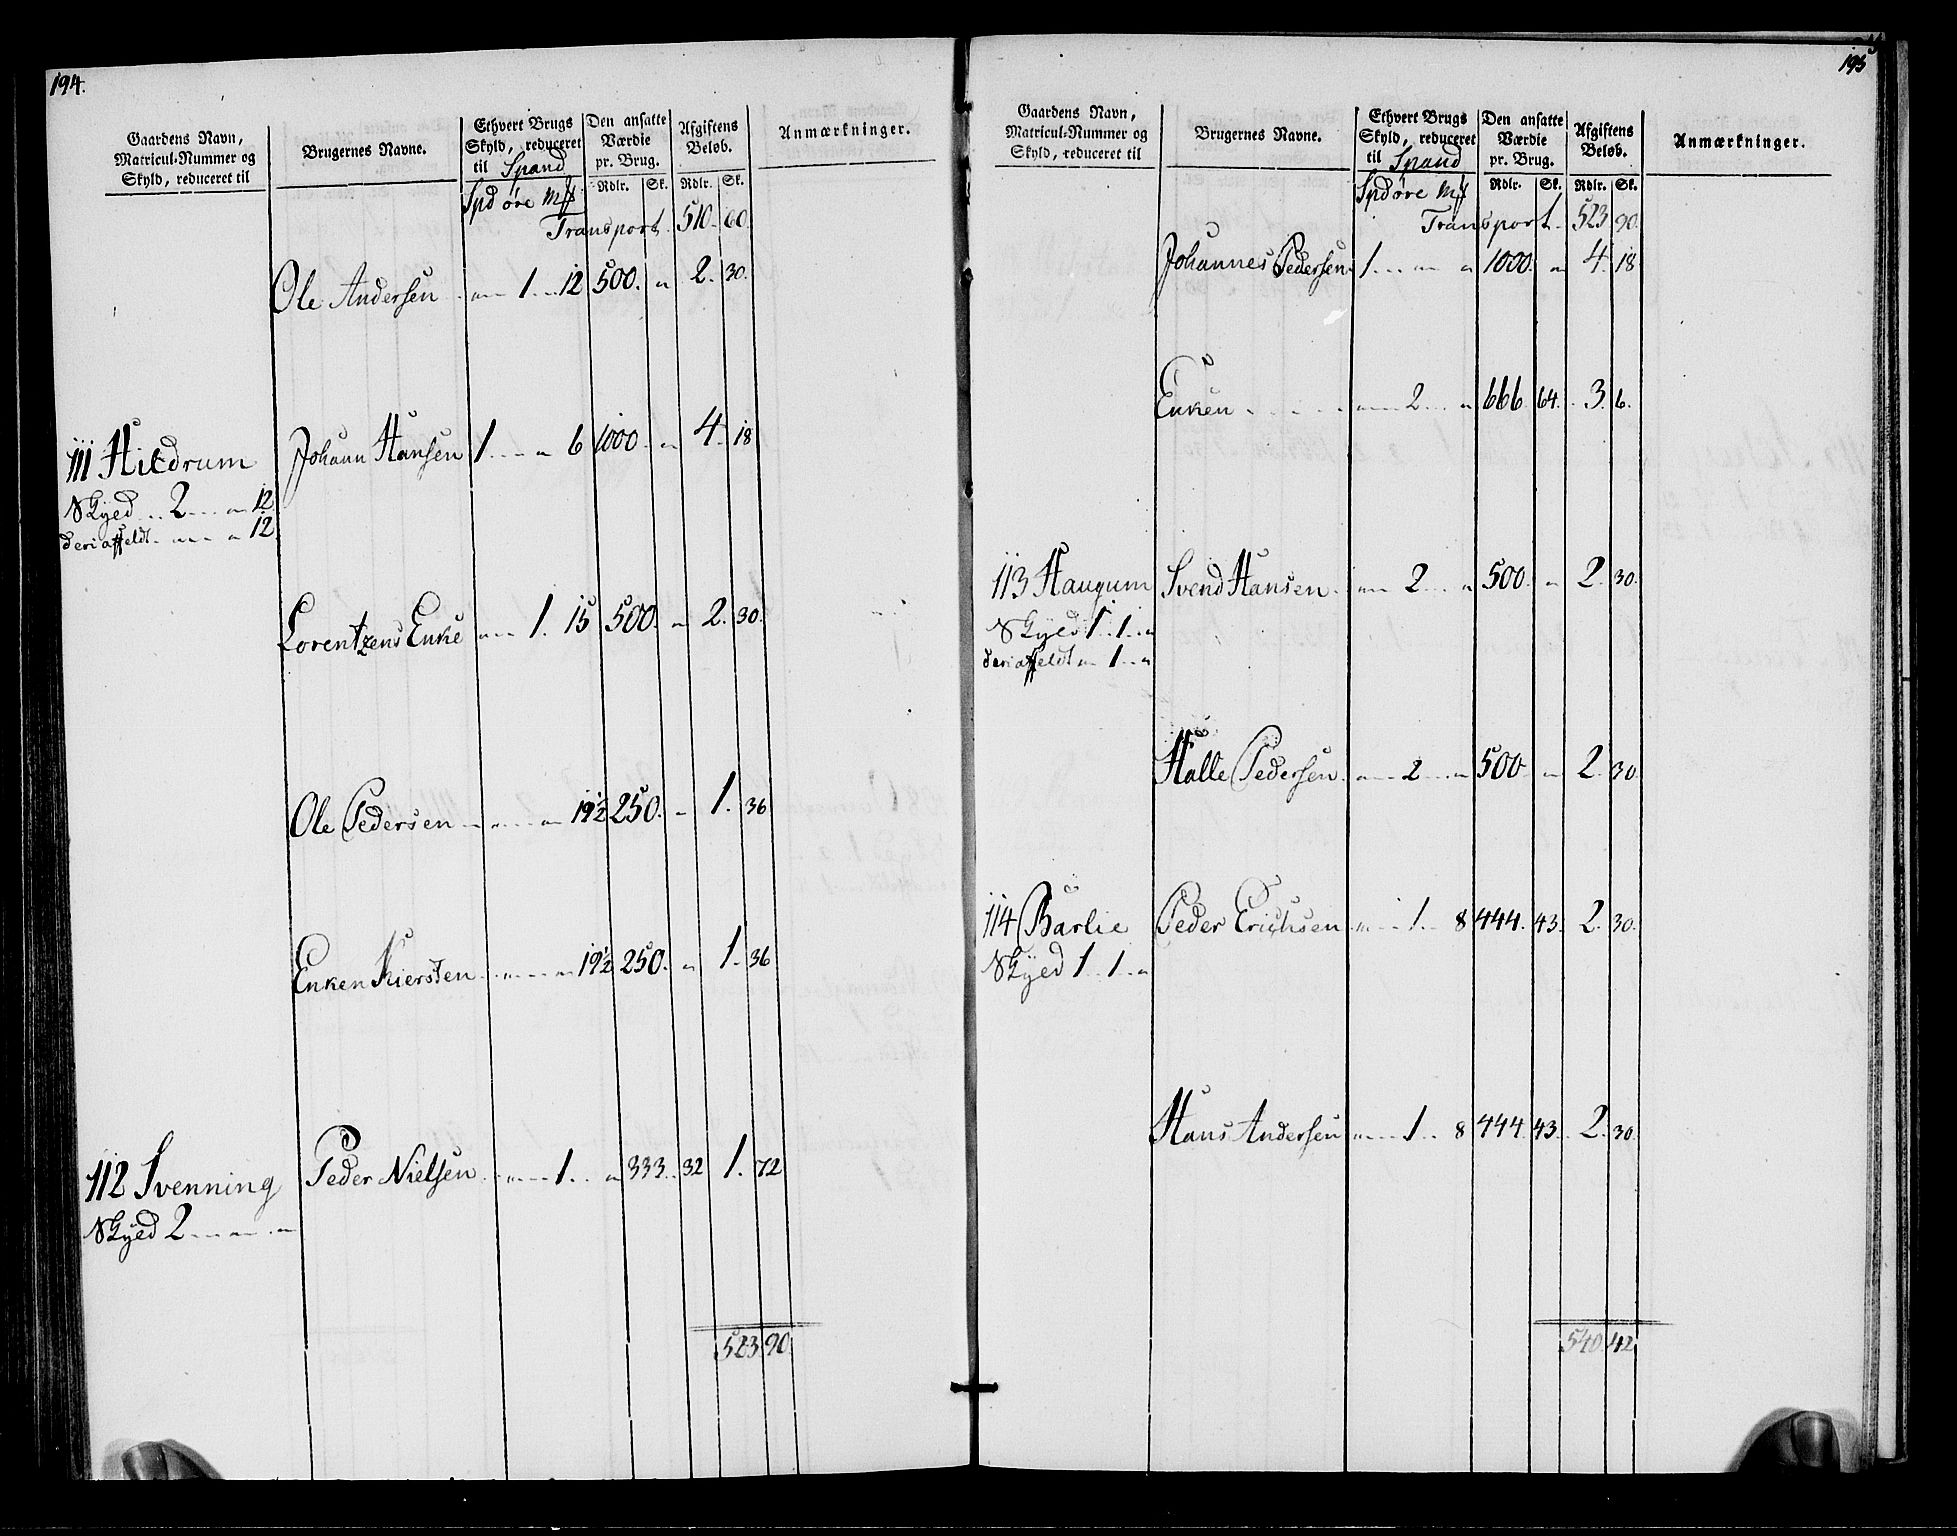 194.
Gaardens Navn, Matricul-Nummer og Skyld, reduceret til
Brugernes Navne.
Ethvert Brugs Skyld, reduceret til Spand
Den ansatte Værdie pr. Brug.
Afgiftens Beløb.
Anmærkninger.
Rdlr. Sk. Rdlr. Sk.
Spd øre Mſ
Transport. 510. 60.
Ole Andersen 1 12 500. 2. 30.
111 Hildrum Johann Hansen 1 6 1000. 4. 18
Skyld 2 12.
deriaffeldt 12
Lorentzens Enke 1. 15 500. 2. 30.
Ole Pedersen 19½ 250. 1. 36
Enken Kiersten 19½ 250. 1. 36
112 Svenning Peder Nielsen 1 333. 32 1. 72
Skyld 2
523. 90
195
Gaardens Navn, Matricul-Nummer og Skyld, reduceret til
Brugernes Navne.
Ethvert Brugs Skyld, reduceret til Spand
Den ansatte Værdie pr. Brug.
Afgiftens Beløb.
Anmærkninger.
Rdlr. Sk. Rdlr. Sk.
Spd øre Mſ
Transport. 523 90.
Johannes Pedersen 1 1000. 4. 18
Enken 2 666 64. 3. 6.
113 Haugum Svend Hansen 2 500. 2. 30.
Skyld 1 1
deriaffeldt 1
Halle Pedersen 2 500 2. 30.
114 Barlie Peder Erichsen 1 8 444. 43. 2. 30.
Skyld 1 1
Hans Andersen 1 8 444. 43. 2. 30.
540. 42